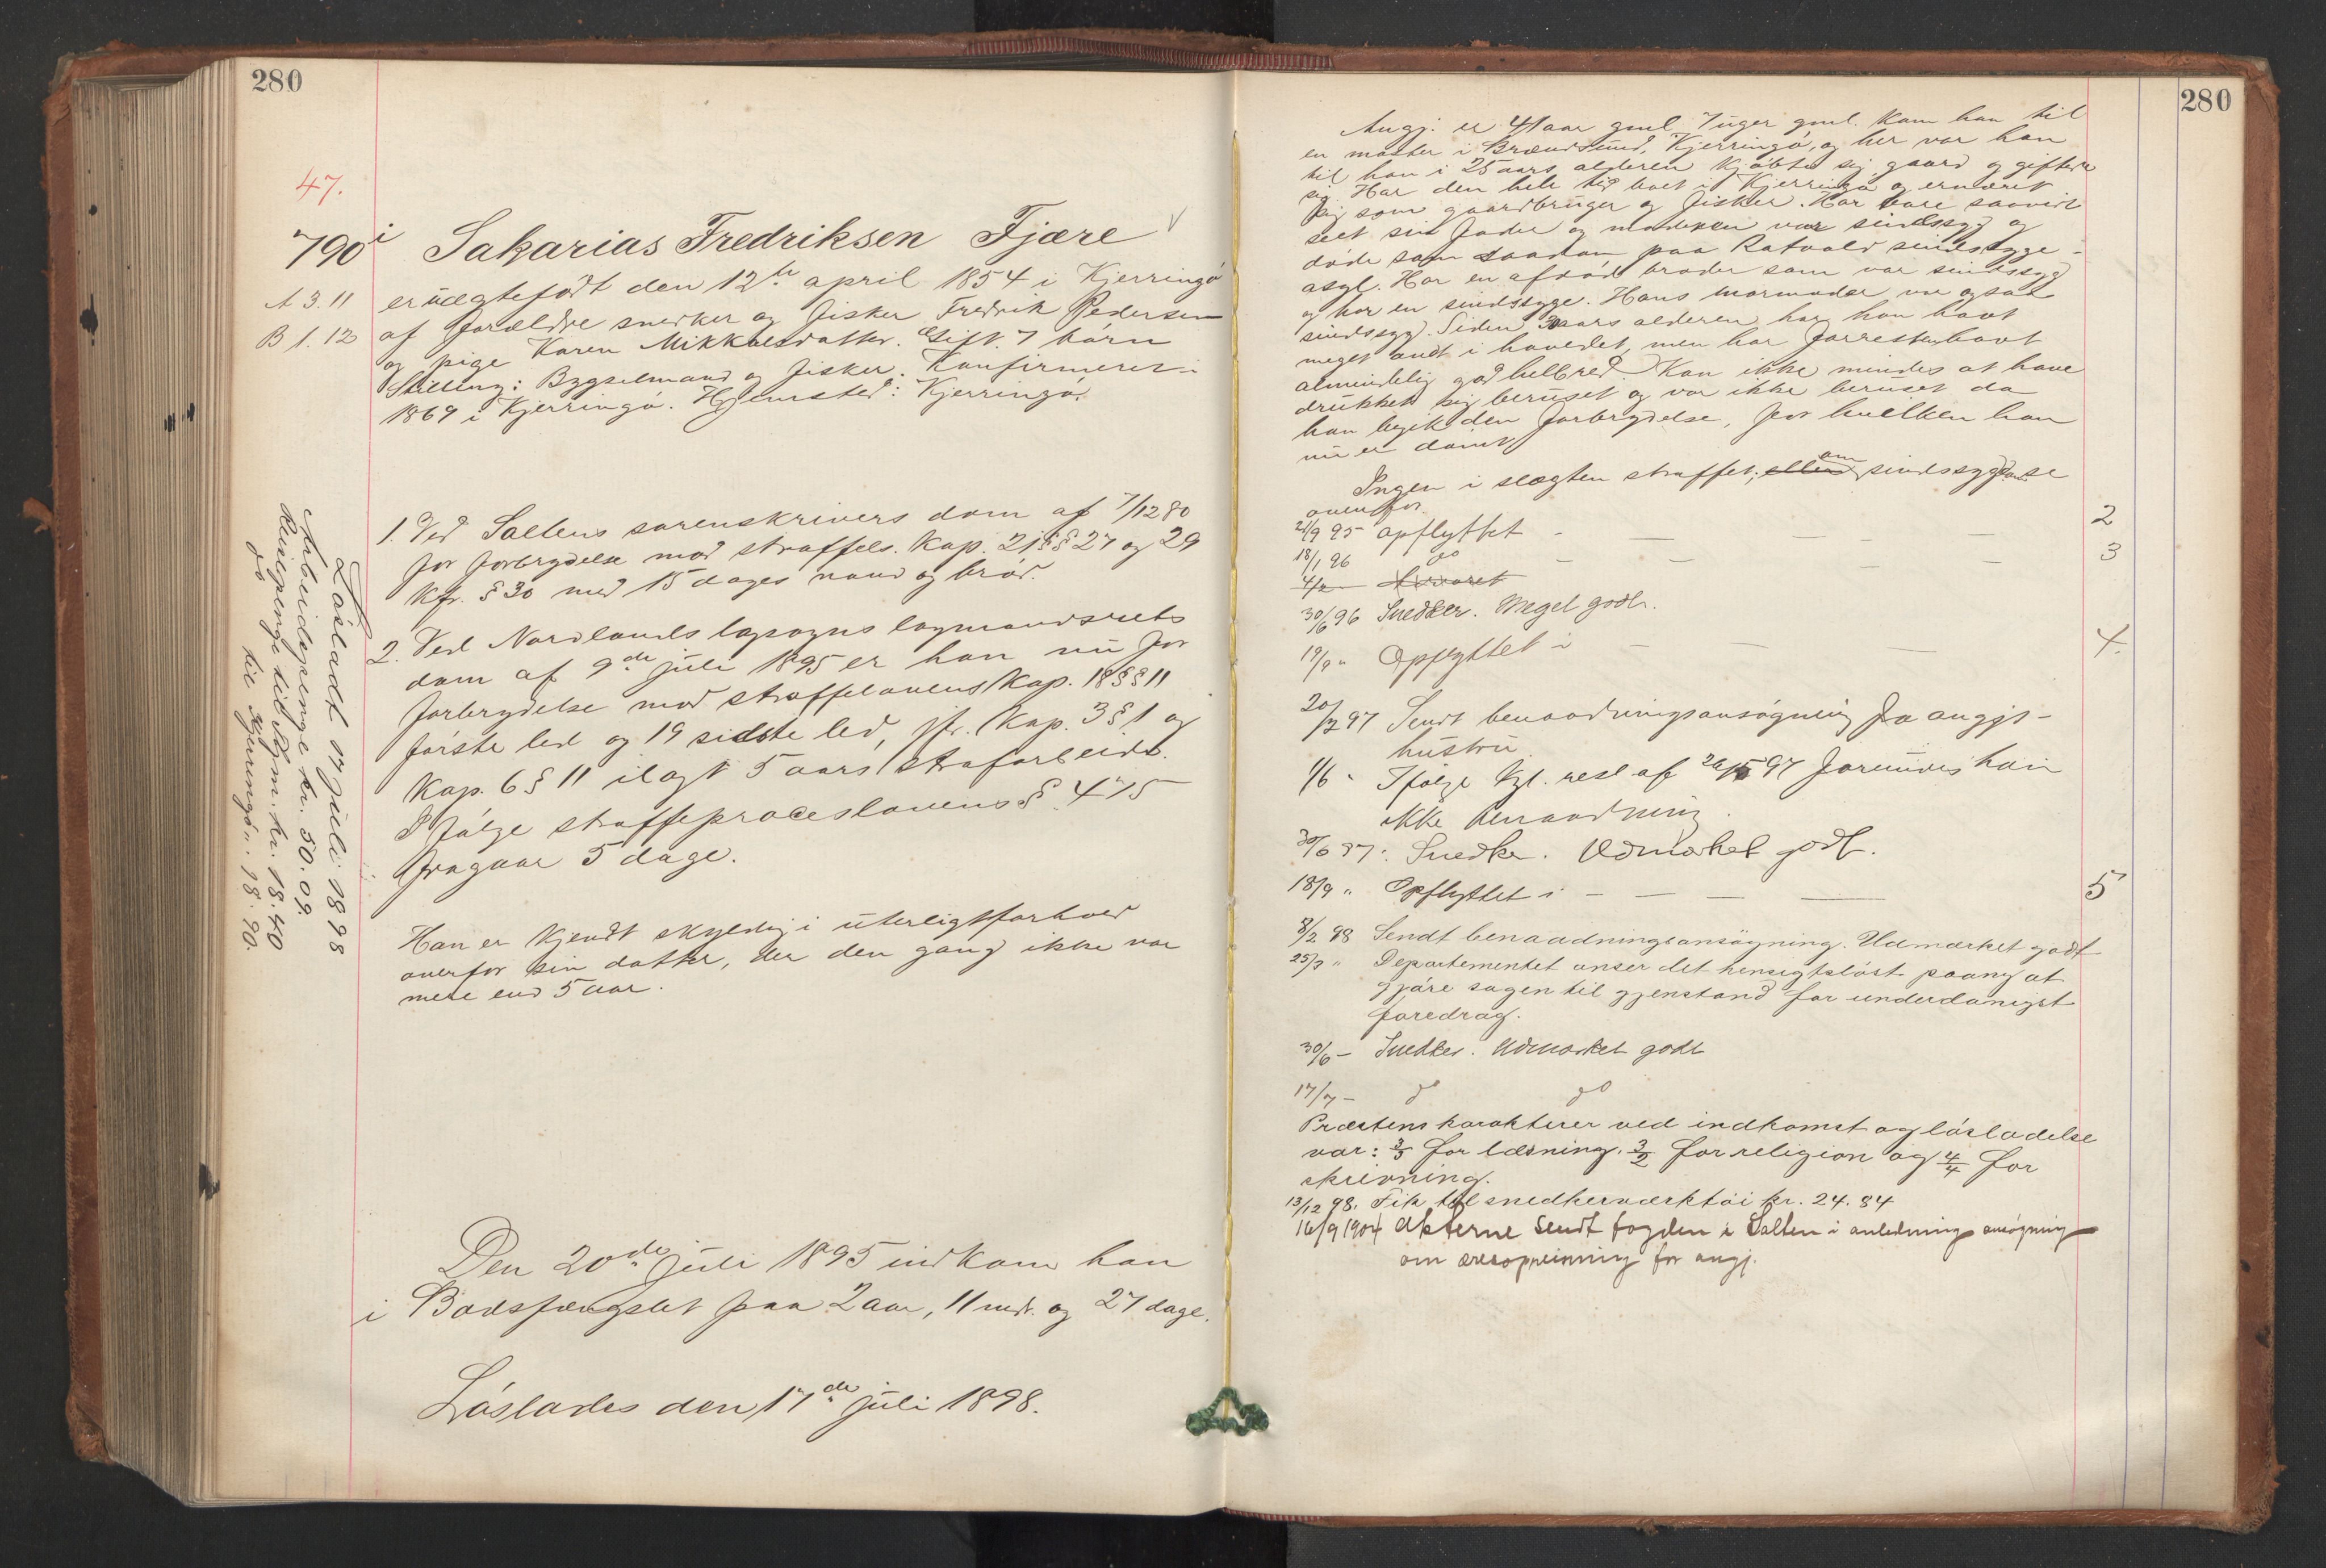 280
47.
790 i Sakarias Fredriksen Fjære
A 3.11
B 1.12
er uægtefødt den 12te april 1854 i Kjerringø
af forældre snedker og fisker Fredrik Pedersen
og pige Karen Mikkelsdatter. Gift. 7 børn
Stilling: Bygselmand og fisker. Konfirmeret i
1869 i Kjerringø. Hjemsted: Kjerringø.
1. Ved Saltens sorenskrivers dom af 7/12 80
for forbrydelse mod straffels. Kap. 21 §§ 27 og 29
kfr. § 30 med 15 dages vand og brød.
2. Ved Nordlands lagsogns lagmandsrets
dom af 9de juli 1895 er han nu for
forbrydelse mod straffelovens Kap. 18 §§ 11
første led og 19 sidste led, jfr. Kap. 3 § 1 og
Kap. 6 § 11 ilagt 5 aars strafarbeide.
I følge straffeproceslovens § 475
fragaar 5 dage.
Han er kjendt skyldig i uterligt forhold
overfor sin datter, der den gang ikke var
mere end 5 aar.
Løsladt 17 juli 1898
Arbeidspenge kr. 50.09
Reisepenge til Bgn. kr. 18.40
do til Kjerringø " 18.90.
Den 20de juli 1895 indkom han
i Bodsfængslet paa 2 aar, 11 mdr. og 27 dage.
Løslades den 17de juli 1898.
280
Angj. er 41 aar gml. 7 uger gml. kom han til
en moster i Brændsund, Kjerringø, og her var han
til han i 25 aars alderen kjøbte sig gaard og giftede
sig. Har den hele tid boet i Kjerringø og ernæret
sig som gaardbruger og fisker. Har bare saavidt
seet sin fader og moderen var sindssyg og
døde som saadan paa Rotvold sindssyge-
asyl. Har en afdød broder som var sindssyg
og har en sindssyge. Hans mormoder var ogsaa
sindssyg. Siden 30 aars alderen har han havt
meget ondt i hovedet, men har forresten havt
almindelig god helbred. Kan ikke mindes at have
drukket sig beruset og var ikke beruset da
han begik den forbrydelse, for hvilken han
nu er dømt.
Ingen i slægten straffet, eller om sindssygdom se
ovenfor.
21/9 95 opflyttet - — — — — 2
18/1 96 do - — — — 3
4/2 Advaret
30/6 96 Snedker. Meget godt.
19/9 " Opflyttet i — — — 4.
20/2 97 Sendt benaadningsansøgning fra angjs-
hustru
1/6 " Ifølge kgl. resl af 26/5 97 forundes han
ikke benaadning.
30/6 97: Snedker. Udmærket godt.
18/9 " Opflyttet i - — — — 5
8/2 98 Sendt benaadningsansøgning. Udmærket godt
25/3 " Departementet anser det hensigtsløst paany at
gjøre sagen til gjenstand for underdanigst
foredrag.
30/6 - Snedker. Udmærket godt
17/7 - do do
Præstens karakterer ved indkomst og løsladelse
var: 3/3 for læsning. 3/2 for religion og 4/4 for
skrivning.
13/12 98. Fik til snedkerværktøi kr. 24.84
16/9 1904 Akterne sendt fogden i Salten i anledning ansøgning
om æresopreisning for angj.